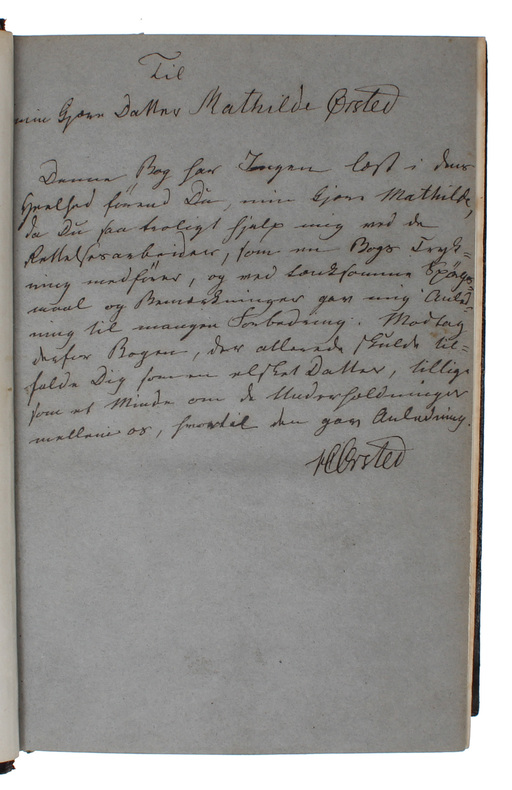 Til
min Kjære Datter Mathilde Ørsted
Denne Bog har Ingen læst i dens
Heelhed førend Du, min Kjære Mathilde,
da Du saa troligt hjalp mig ved de
Rettelsesarbeider, som en Bogs Tryk-
ning medfører, og ved tænksomme Spørgs-
maal og Bemærkninger gav mig Anled-
ning til mangen Forbedring. Modtag
derfor Bogen, der allerede skulde til-
falde Dig som en elsket Datter, tillige
som et Minde om de Underholdninger
mellem os, hvortil den gav Anledning.
HCØrsted